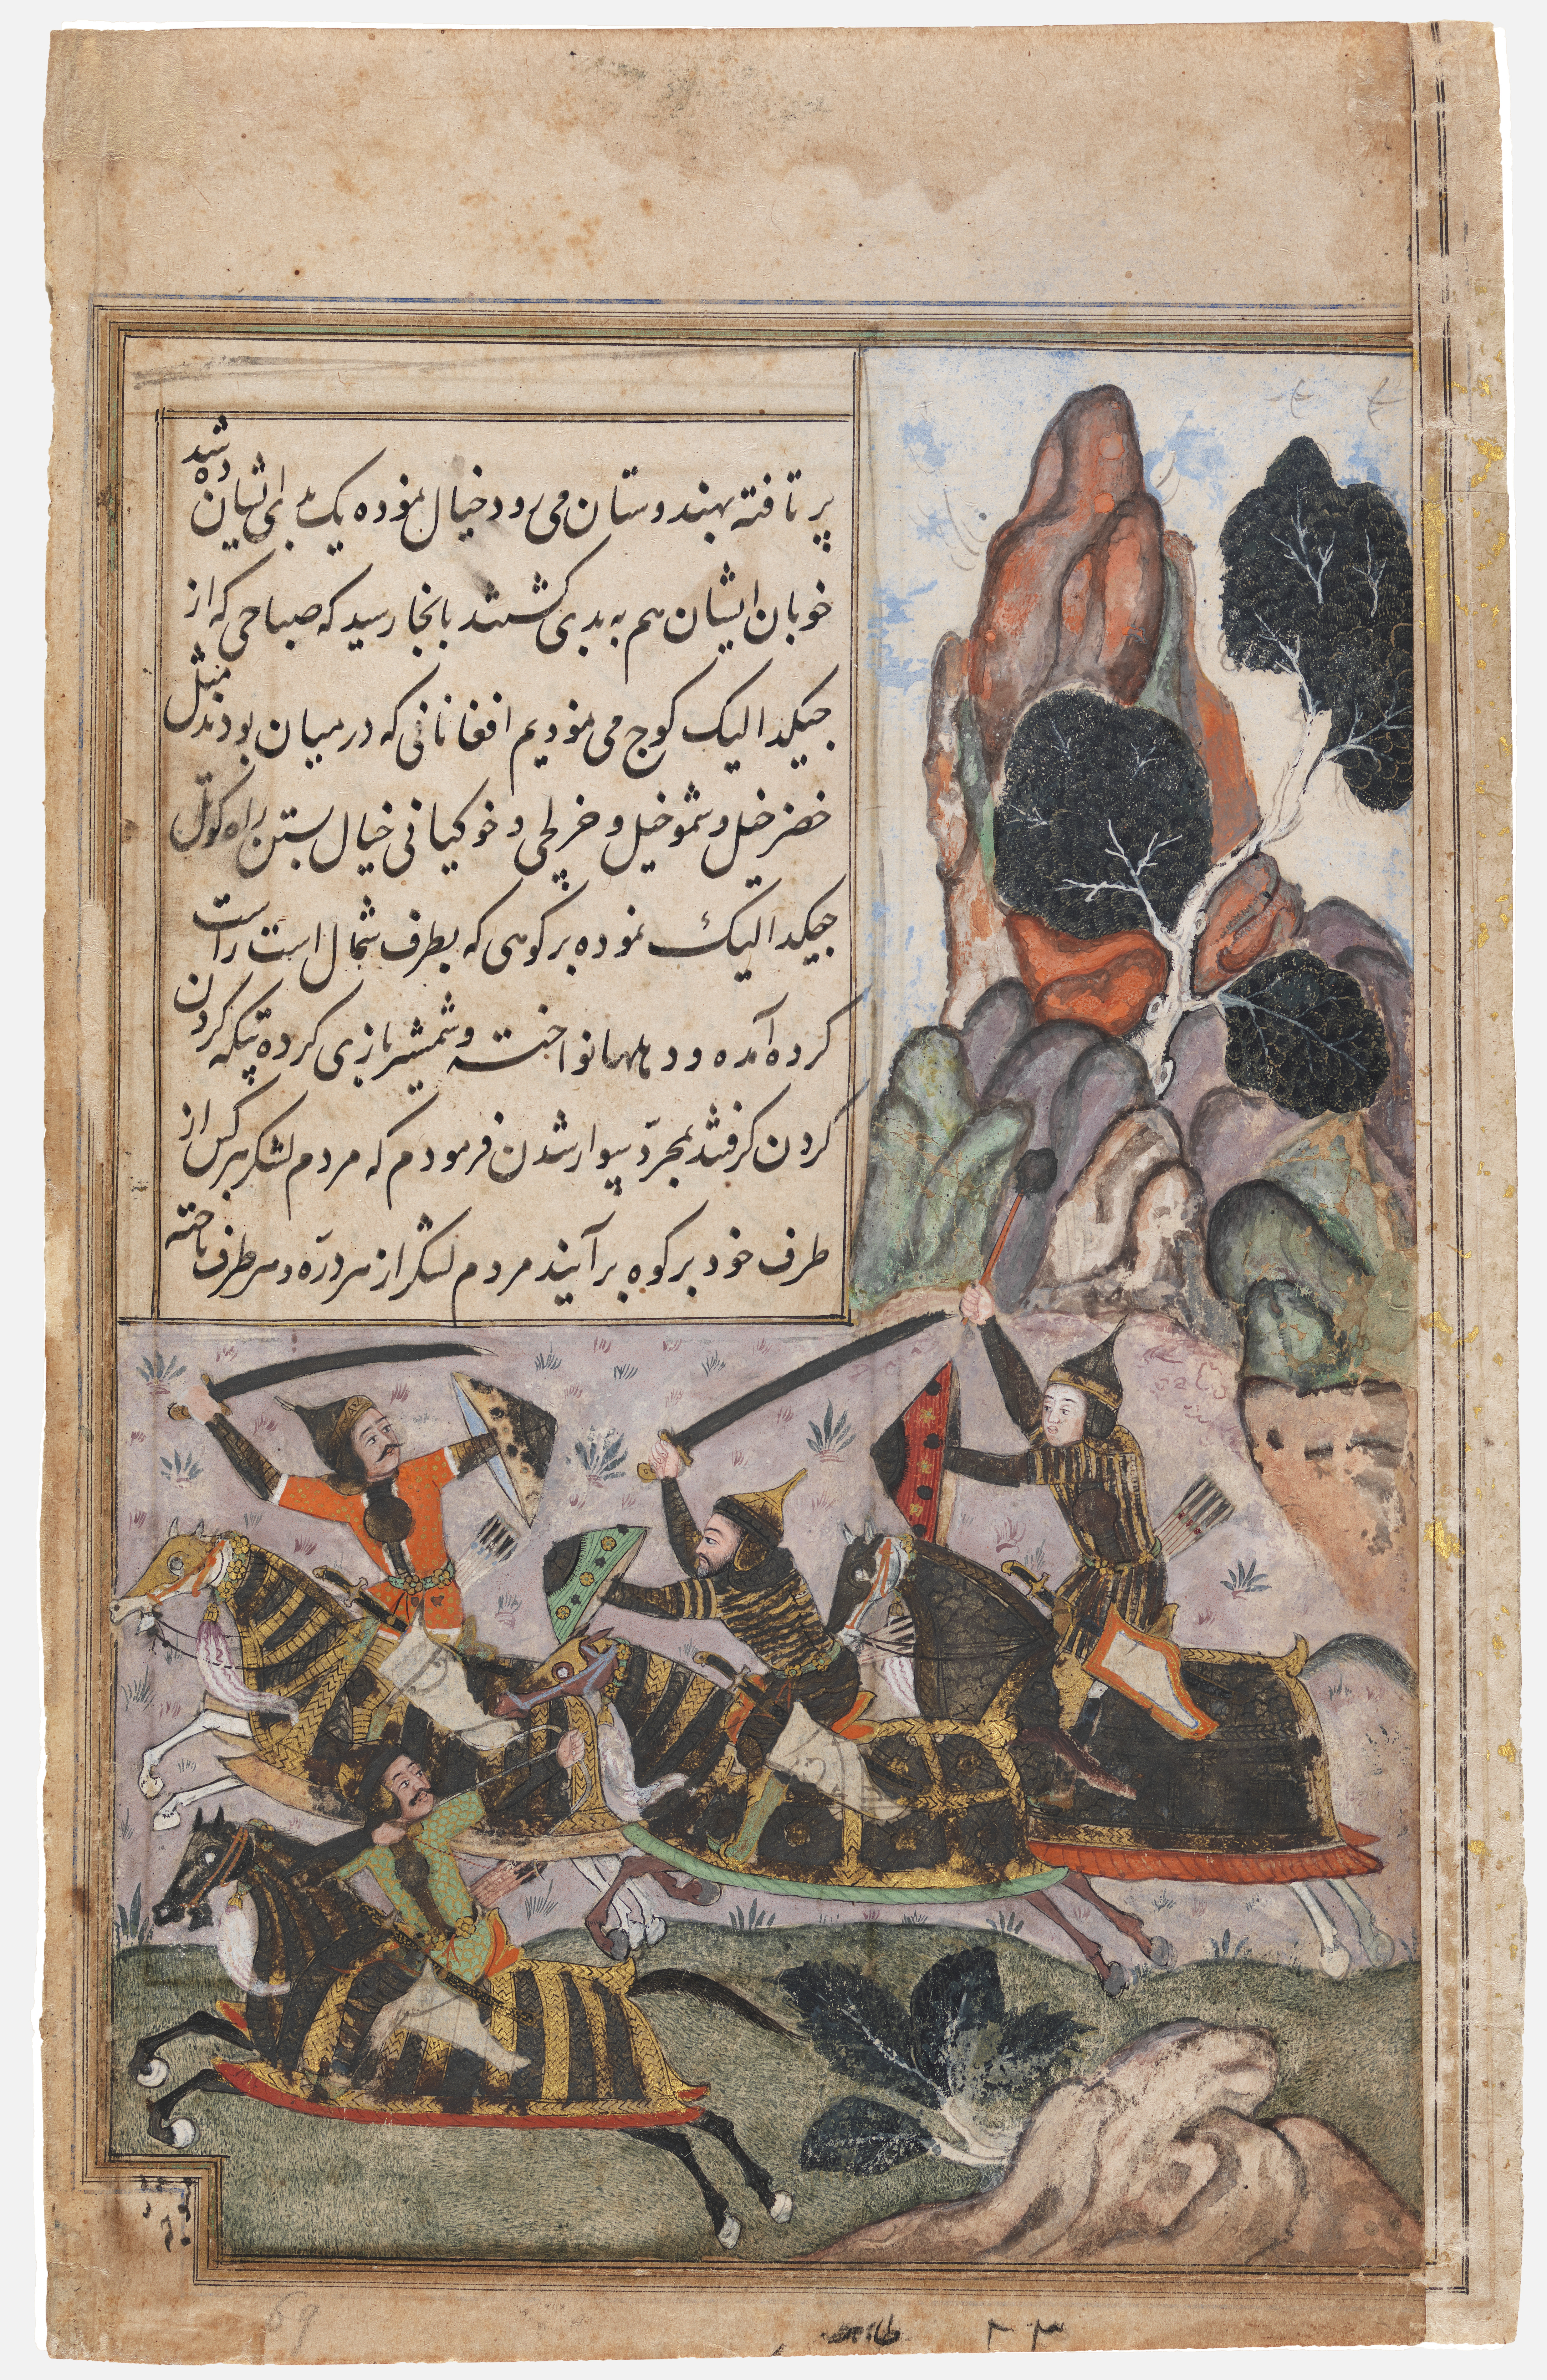 پر تافته بهندوستان می رود خیال نموده یک بده ای شان شد
خوبان ایشان هم به بدی کشتند بانجا رسید که صباحی که از
جیکدالیک کوچ می نمودیم افغانانی که در میان بودند مثل
خضر خیل و شمو خیل و خرلچی و خوکیانی خیال بستن راه کوتل
جیکدالیک نموده بر کوهی که بطرف شمال است راست
کرده آمده و دهلها نواخته و شمشیر بازی کرده تپکه کردن
کردن گرفتند بمجرّد سوار شدن فرمودم که مردم لشکر هر کس از
طرف خود بر کوه بر آیند مردم لشکر از هر درّه و هر طرف تاخته
69